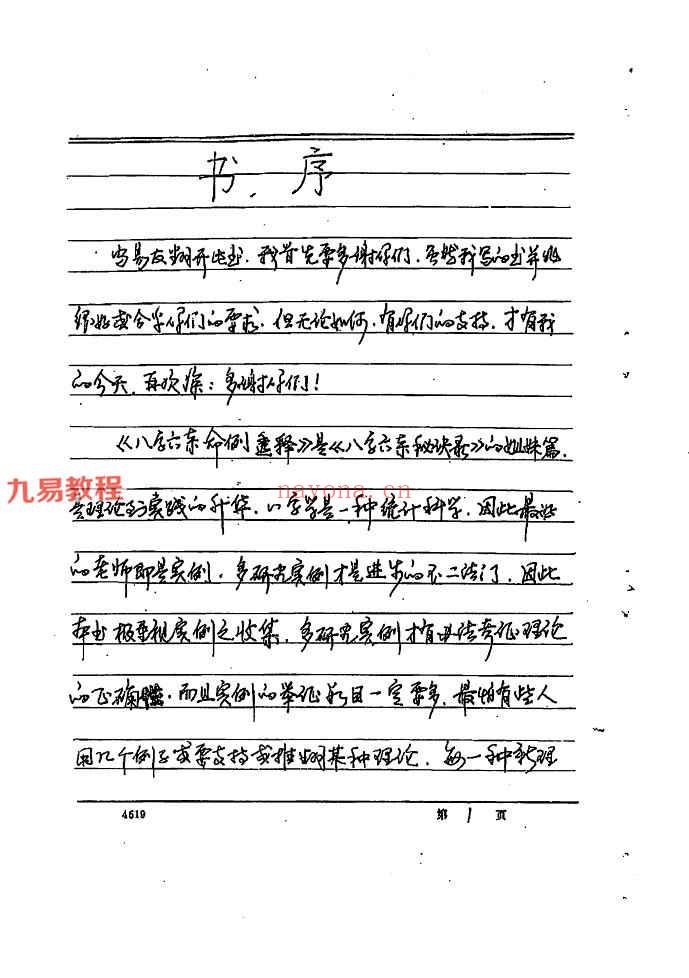 书 序
当易友翻开此书，我首先要多谢你们，虽然我写的书并非
很好或合乎你们的要求，但无论如何，有你们的支持，才有我
的今天，再次深：多谢你们！
《八字六亲命例重释》是《八字六亲秘诀录》的姐妹篇，
是理论到实践的升华，八字学是一种统计科学，因此最好
的老师即是实例，多研究实例才是进步的不二法门，因此
本书极重视实例之收集，多研究实例才有办法考证理论
的正确性，而且实例的举证数目一定要多，最怕有些人
用几个例子或要支持或推翻某种理论，每一种新理
九易教程
nayona.cn
4619 第 1 页